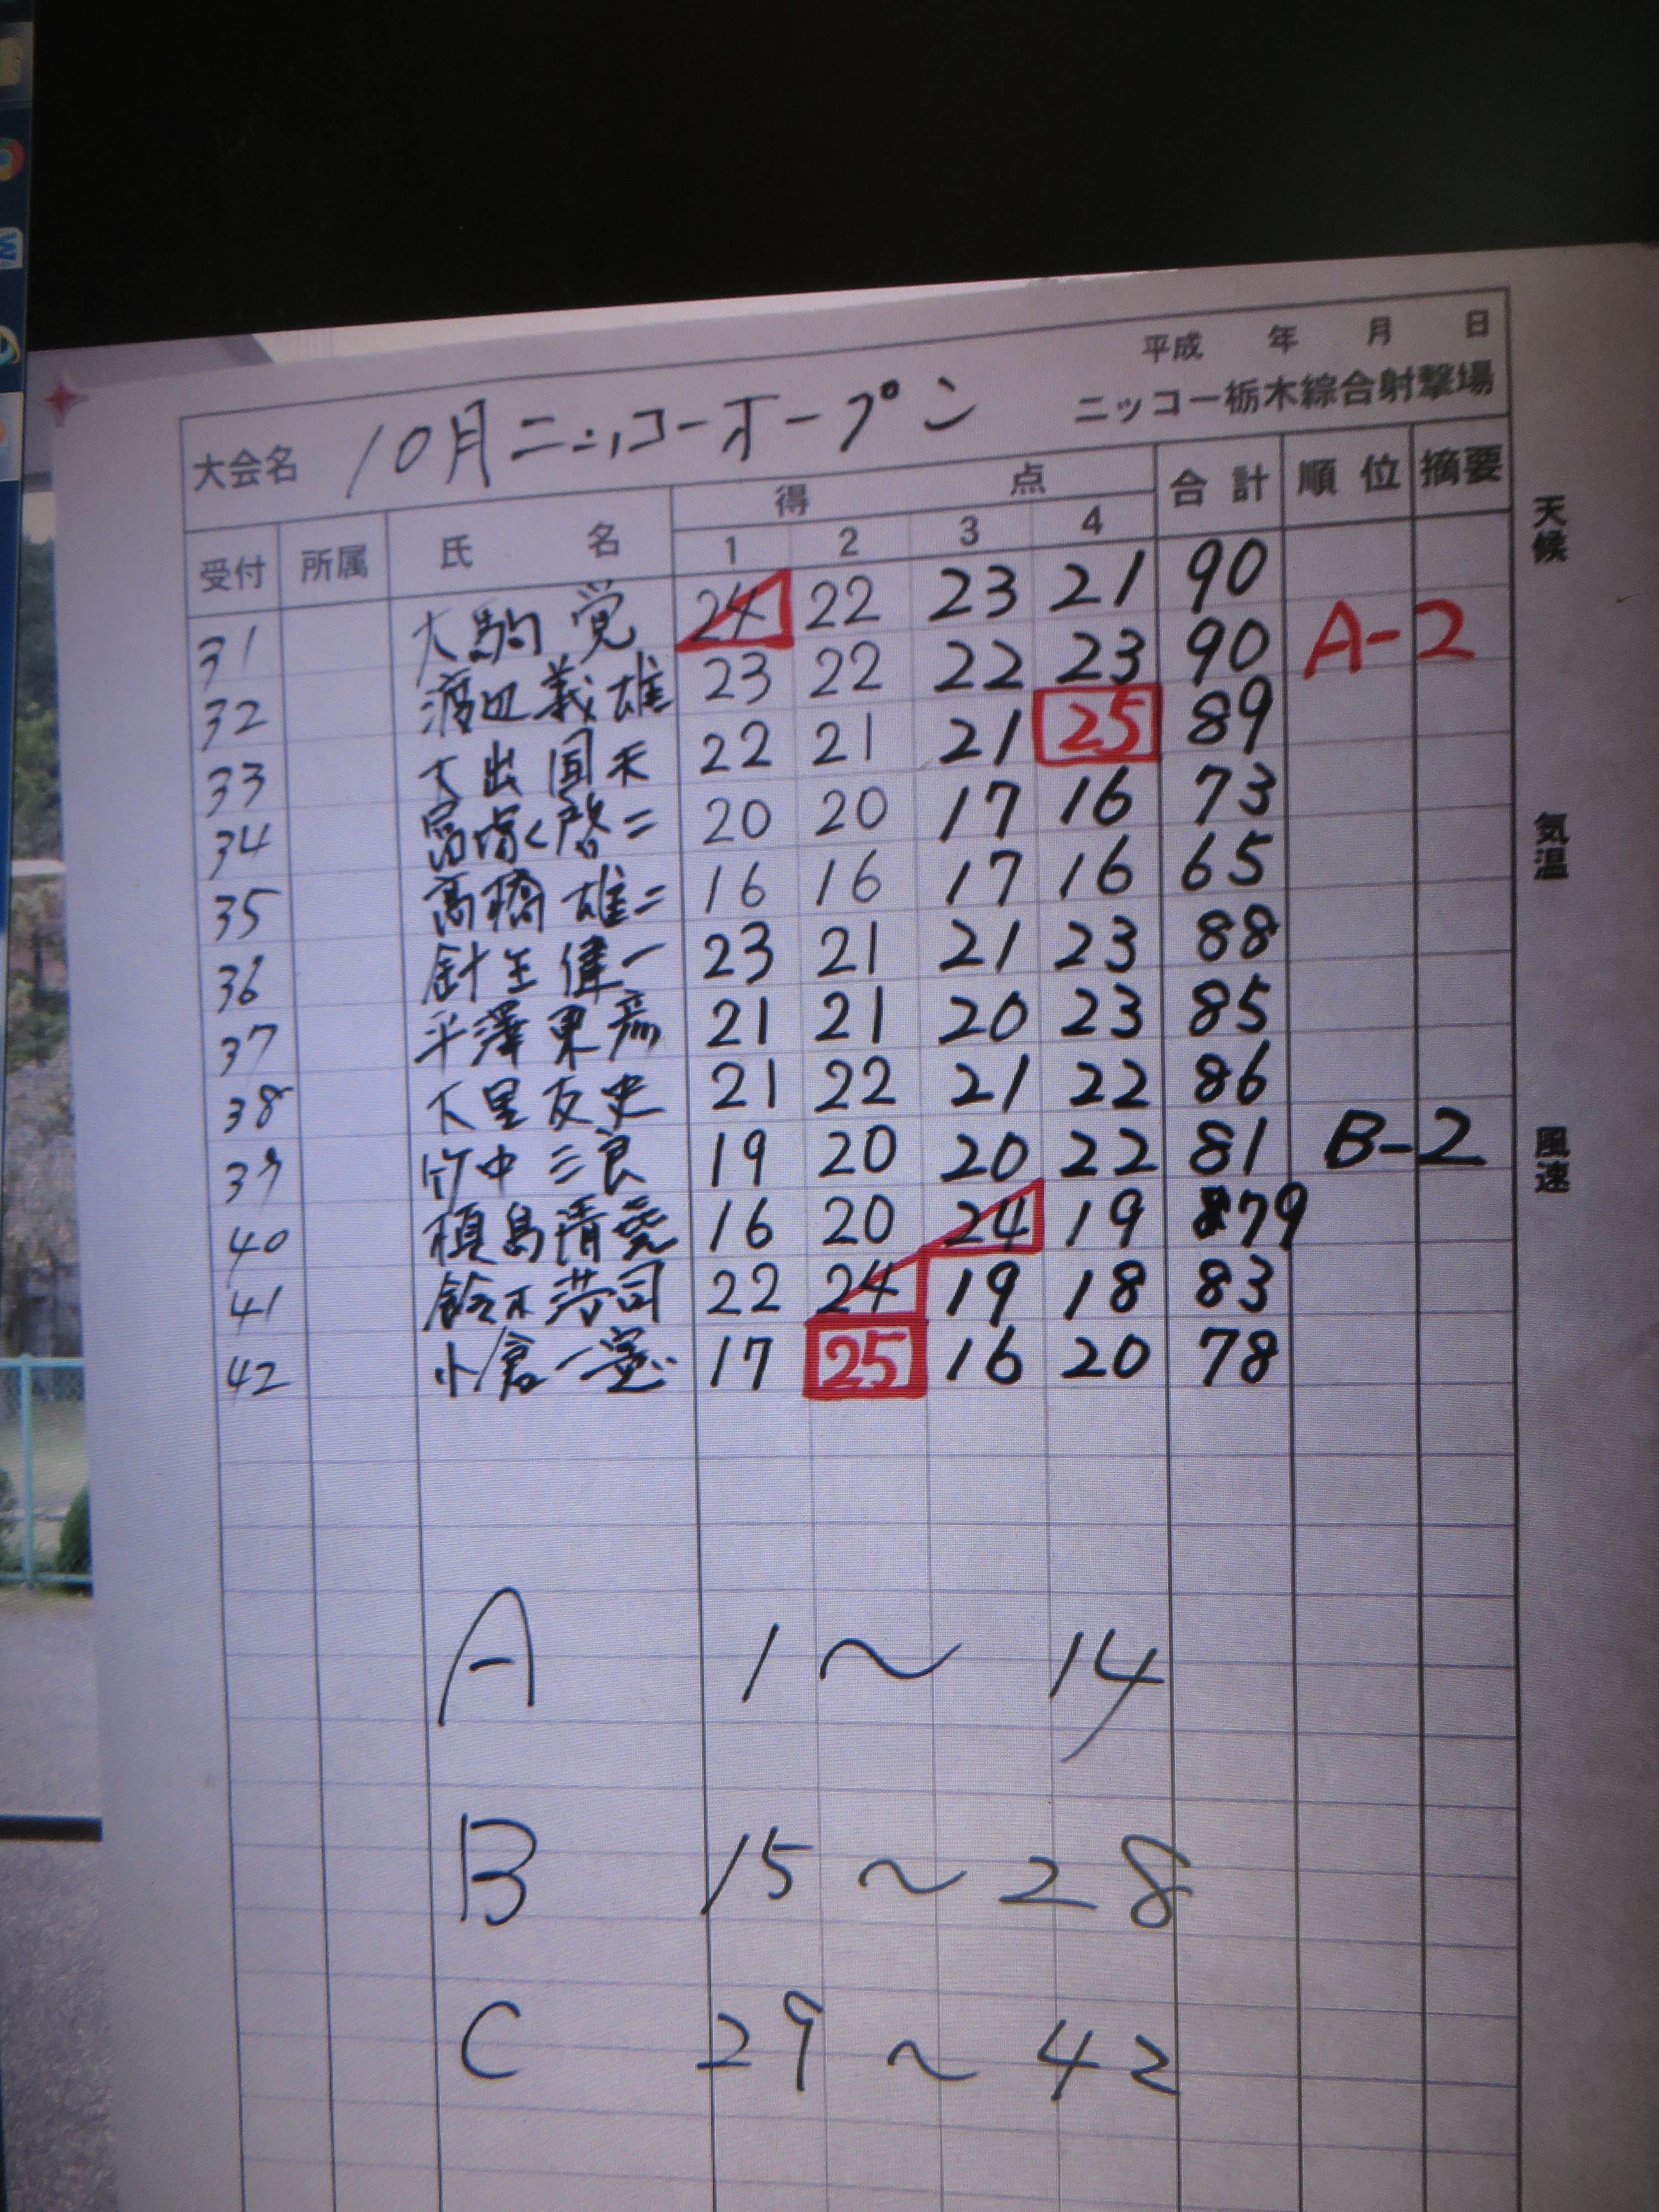 平成 年 月 日
大会名 10月ニッコーオープン ニッコー栃木綜合射撃場
受付 所属 氏名 得点 合計 順位 摘要
1 2 3 4
31 大駒 覚 24 22 23 21 90
32 渡辺義雄 23 22 22 23 90 A-2
33 大出 国夫 22 21 21 25 89
34 啓二 20 20 17 16 73
35 高橋 雄二 16 16 17 16 65
36 針生偉一 23 21 21 23 88
37 平澤東彦 21 21 20 23 85
38 大里友史 21 22 21 22 86
39 竹中 20 20 22 81 19 B-2
40 槙島清 16 20 24 19 79
41 鈴木 司 22 24 19 18 83
42 小倉一憲 17 25 16 20 78
A 1〜14
B 15〜28
C 29〜42
天候
気温
風速